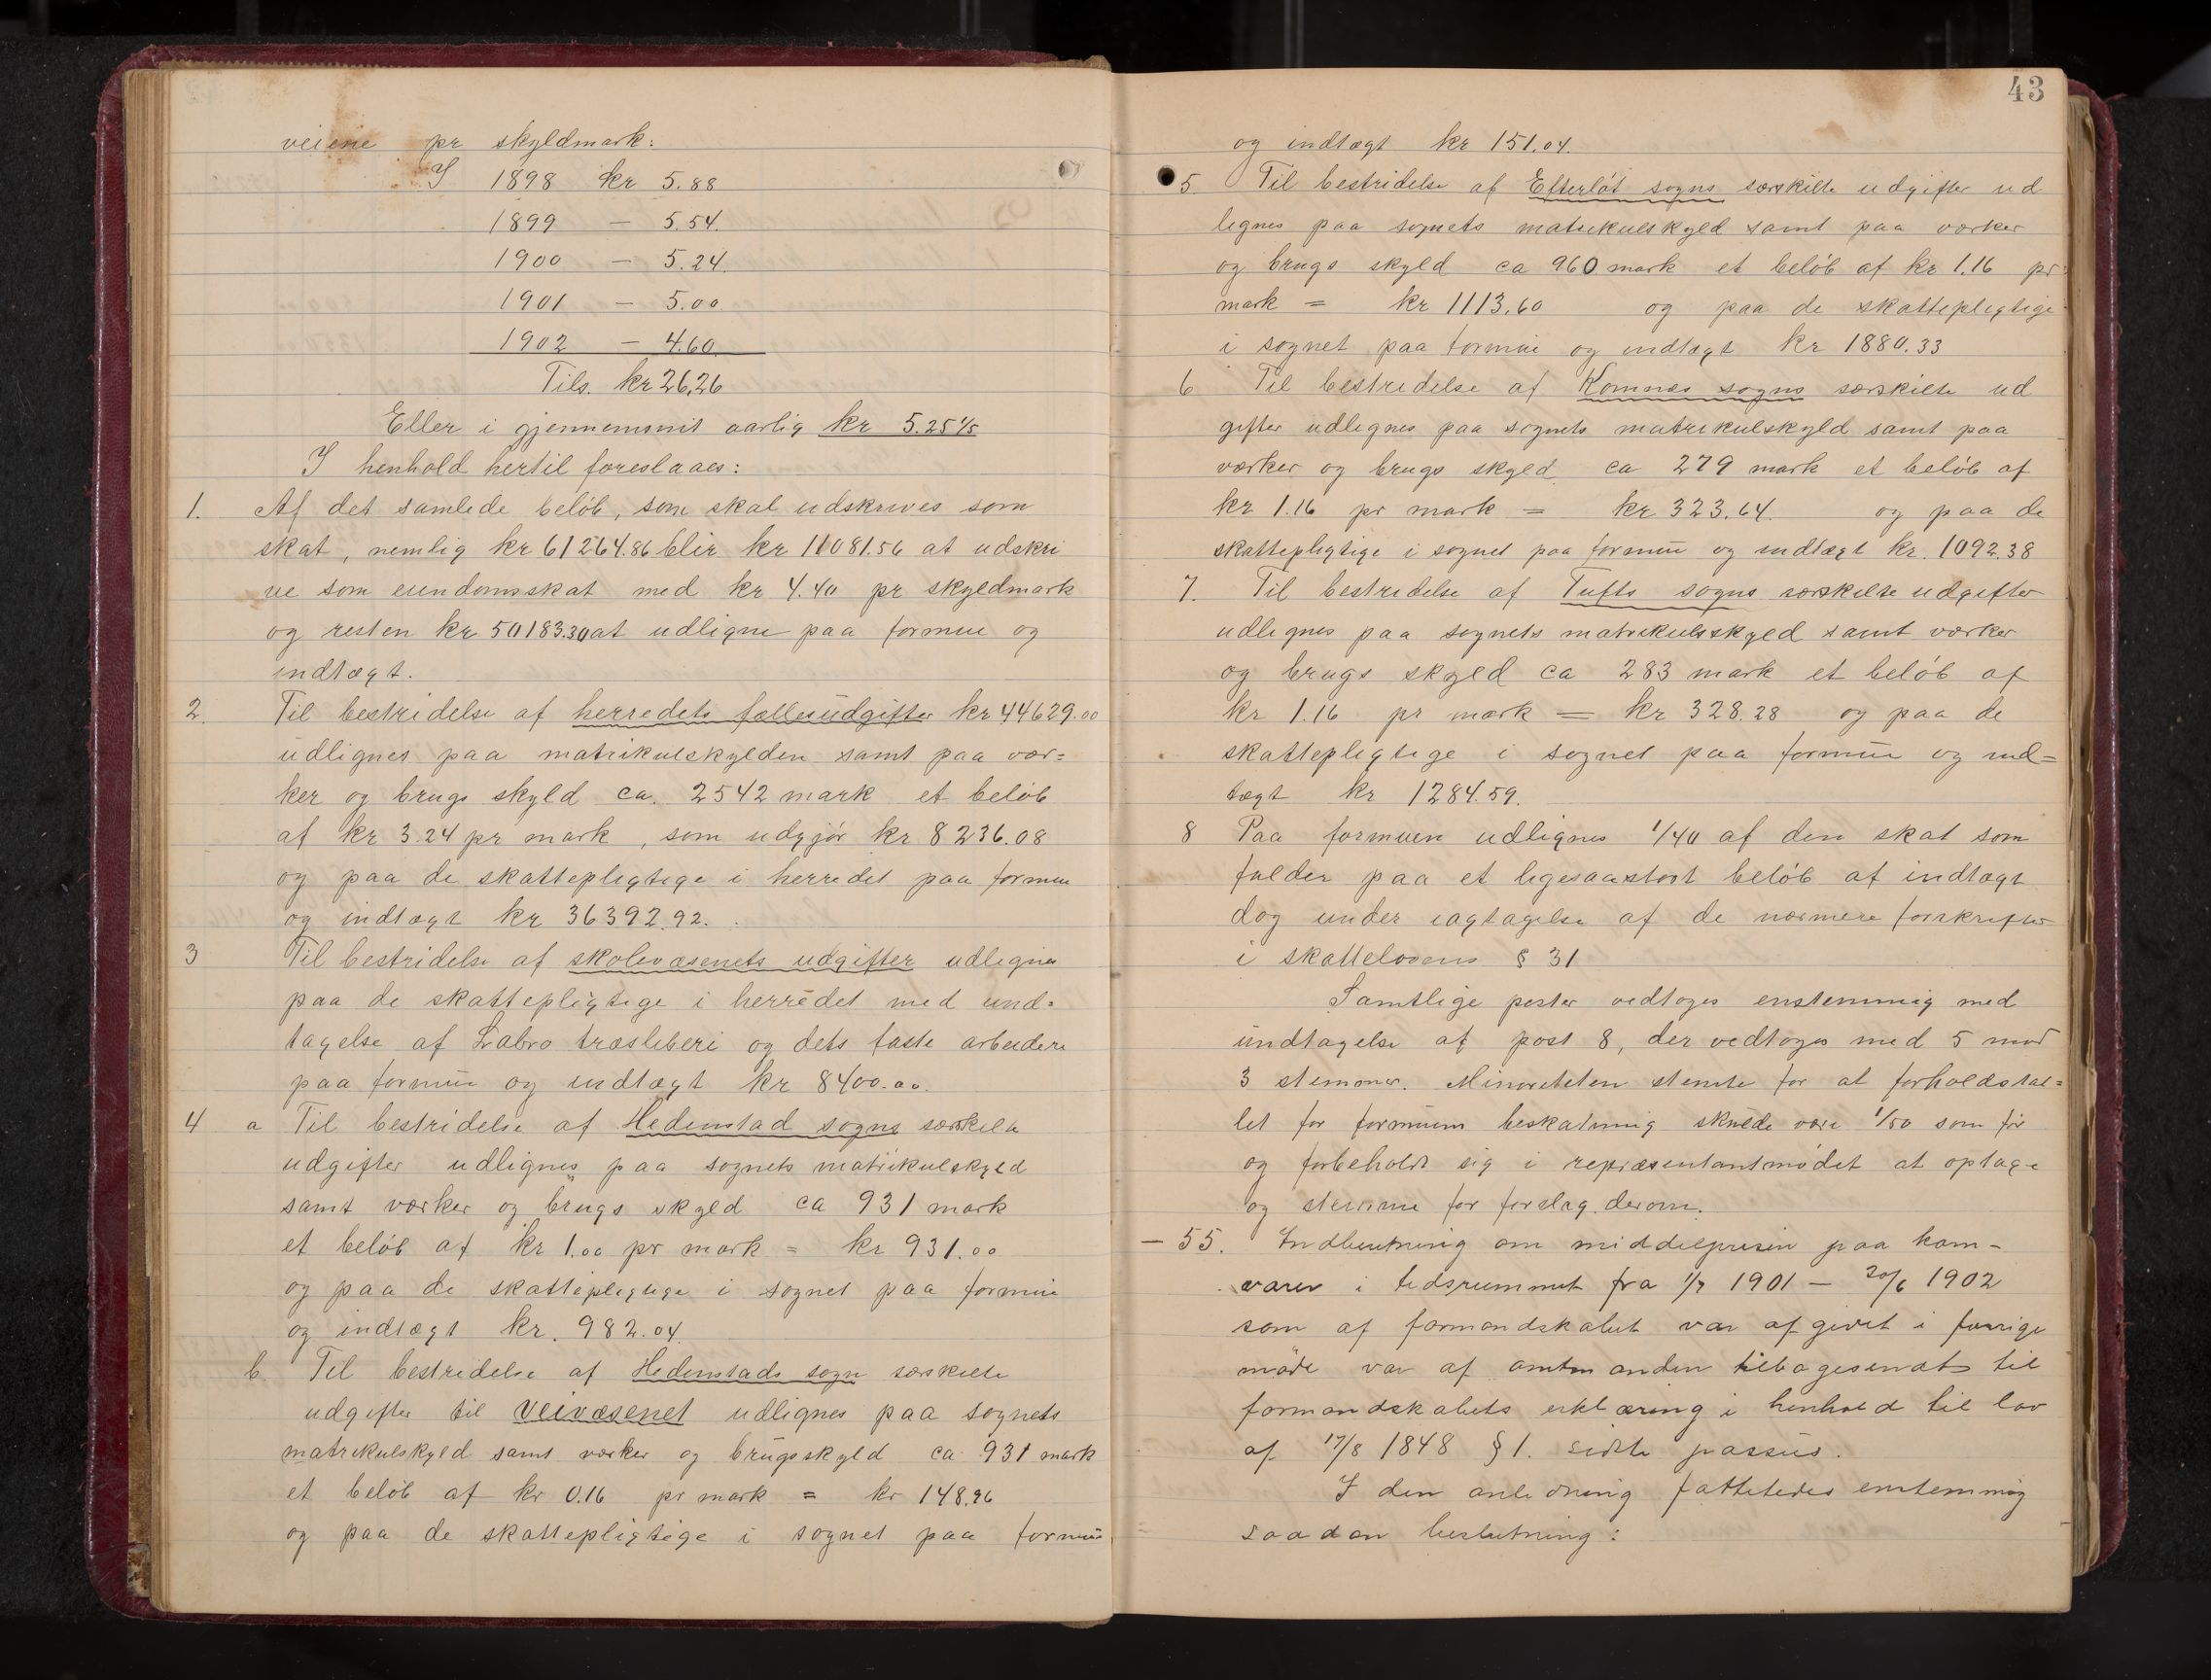 veiene pr skyldmark:
I 1898 kr 5.88
1899 — 5.54.
1900 — 5.24.
1901 — 5.00
1902 — 4.60
Tils. kr 26.26
Eller i gjennemsnit aarlig kr 5.25 1/5
I henhold hertil foreslaaes:
1. Af det samlede beløb, som skal udskrives som
skat, nemlig kr 61264.86 blir kr 11081.56 at udskri
ve som eiendomsskat med kr 4.40 pr skyldmark
og resten kr 50183.30 at udligne paa formue og
indtægt.
2. Til bestridelse af herredets fællesudgifter kr 44629.00
udlignes paa matrikulskylden samt paa vær=
ker og brugs skyld ca. 2542 mark et beløb
af kr 3.24 pr mark, som udgjør kr 8236.08
og paa de skattepligtige i herredet paa formue
og indtægt kr 36392.92.
3 Til bestridelse af skolevæsenets udgifter udlignes
paa de skattepligtige i herredet med und=
tagelse af Labro træsliberi og dets faste arbeidere
paa formue og indtægt kr 8400.00.
4 a Til bestridelse af Hedenstad sogns særskilte
udgifter udlignes paa sognets matrikulskyld
samt værker og brugs skyld ca 931 mark
et beløb af kr 1.00 pr mark = kr 931.00
og paa de skattepligtige i sognet paa formue
og indtægt kr. 982.04
b. Til bestridelse af Hedenstads sogn særskilte
udgifter til veivæsenet udlignes paa sognets
matrikulskyld samt værker og brugsskyld ca 931 mark
et beløb af kr 0.16 pr mark = kr 148.96
og paa de skattepligtige i sognet paa formue
43
og indtægt kr 151.04.
5. Til bestridelse af Efterløt sogns særskilte udgifter ud
lignes paa sognets matrikulskyld samt paa værker
og brugs skyld ca 960 mark et beløb af kr 1.16 pr
mark = kr 1113.60 og paa de skattepligtige
i sognet paa formue og indtægt kr 1880.33
6 Til bestridelse af Komnes sogns særskilte ud
gifter udlignes paa sognets matrikulskyld samt paa
værker og brugs skyld ca 279 mark et beløb af
kr 1.16 pr mark = kr 323.64. og paa de
skattepligtige i sognet paa formue og indtægt kr. 1092.38
7. Til bestridelse af Tufts sogns særskilte udgifter
udlignes paa sognets matrikulsskyld samt værker
og brugs skyld ca 283 mark et beløb af
kr 1.16 pr mark = kr 328.28 og paa de
skattepligtige i sognet paa formue og ind=
tægt kr 1284.59.
8 Paa formuen udlignes 1/40 af den skat som
falder paa et ligesaastort beløb af indtægt
dog under iagtagelse af de nærmere forskrifter
i skattelovens § 31
Samtlige poster vedtoges enstemmig med
undtagelse af post 8, der vedtoges med 5 mod
3 stemmer. Minoriteten stemte for at forholdstal=
let for formuens beskatning skulde være 1/50 som før
og forbeholdt sig i repræsentantmødet at optage
og stemme for forslag derom.
— 55. Indberetning om middelprisen paa korn-
varer i tidsrummet fra 1/7 1901 — 30/6 1902
som af formandskabet var afgivet i forrige
møde var af amtmanden tilbagesendt til
formandskabets erklæring i henhold til lov
af 17/8 1848 § 1. sidste passus.
I den anledning fattedes enstemmig
saadan beslutning: